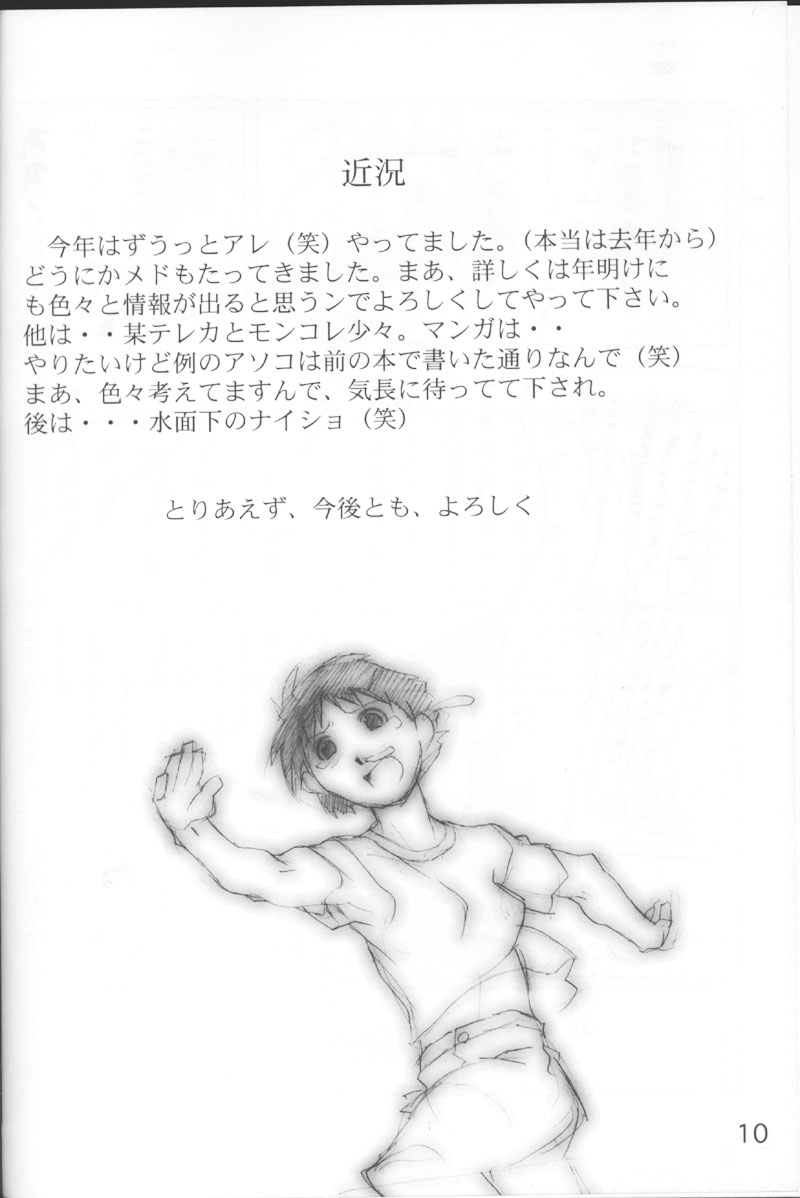 近況
今年はずうっとアレ（笑）やってました。（本当は去年から）
どうにかメドもたってきました。まあ、詳しくは年明けに
も色々と情報が出ると思うンでよろしくしてやって下さい。
他は・・某テレカとモンコレ少々。マンガは・・
やりたいけど例のアソコは前の本で書いた通りなんで（笑）
まあ、色々考えてますんで、気長に待ってて下され。
後は・・・水面下のナイショ（笑）
とりあえず、今後とも、よろしく
10